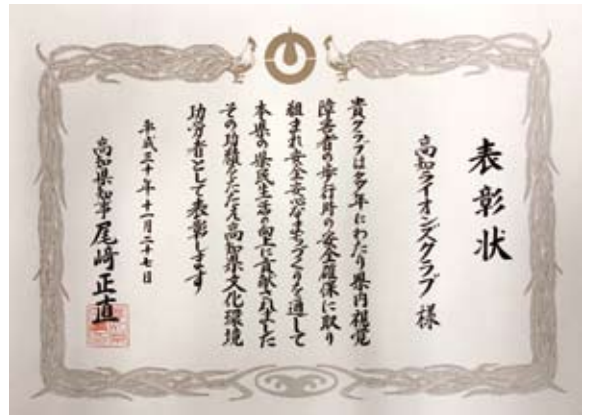 表彰状
高知ライオンズクラブ 様
貴クラブは多年にわたり県内視覚
障害者の歩行時の安全確保に取り
組まれ安全安心なまちづくりを通して
本県の県民生活の向上に貢献されました
その功績をたたえ高知県文化環境
功労者として表彰します
平成三十年十一月二十七日
高知県知事 尾﨑正直